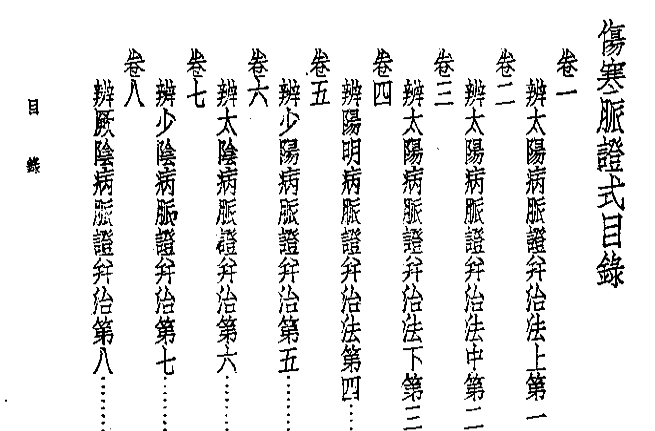 傷寒脈證式目錄
卷一
辨太陽病脈證幷治法上第一
卷二
辨太陽病脈證幷治法中第二
卷三
辨太陽病脈證幷治法下第三
卷四
辨陽明病脈證幷治法第四……
卷五
辨少陽病脈證幷治第五……
卷六
辨太陰病脈證幷治第六……
卷七
辨少陰病脈證幷治第七……
卷八
辨厥陰病脈證幷治第八……
目錄